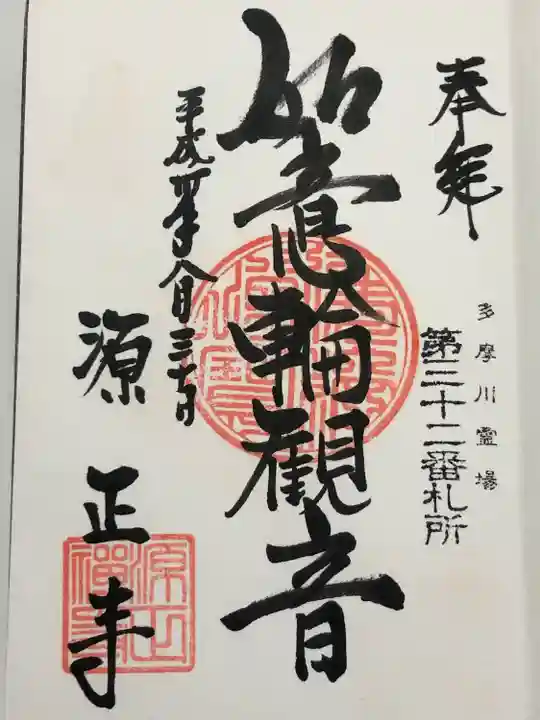 奉拝
多摩川霊場
第三十二番札所
如意輪観音
平成卅年八月三十日
源正寺